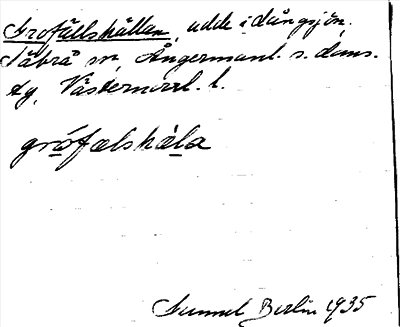 Grofällshällan, udde i Långsjön,
Säbrå sn, Ångermanl. s. doms.
tg, Västernorrl. l.
grófælshàla
Gunnel Berlin 1935